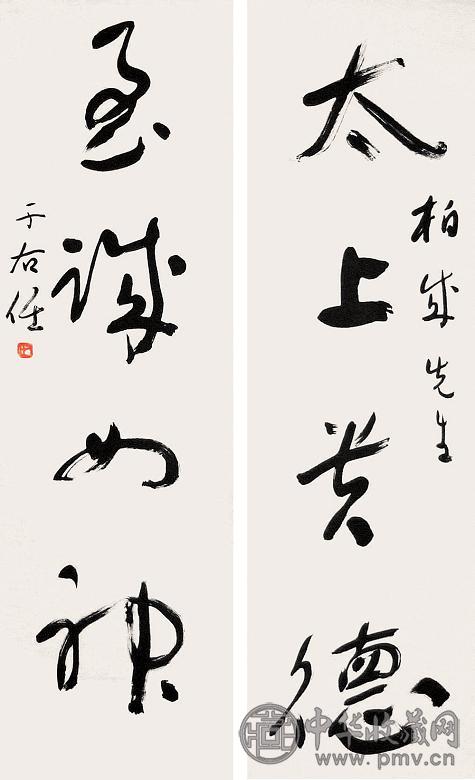 太上貴德
柏成先生
至誠如神
于右任
中华收藏网
www.pmv.cn